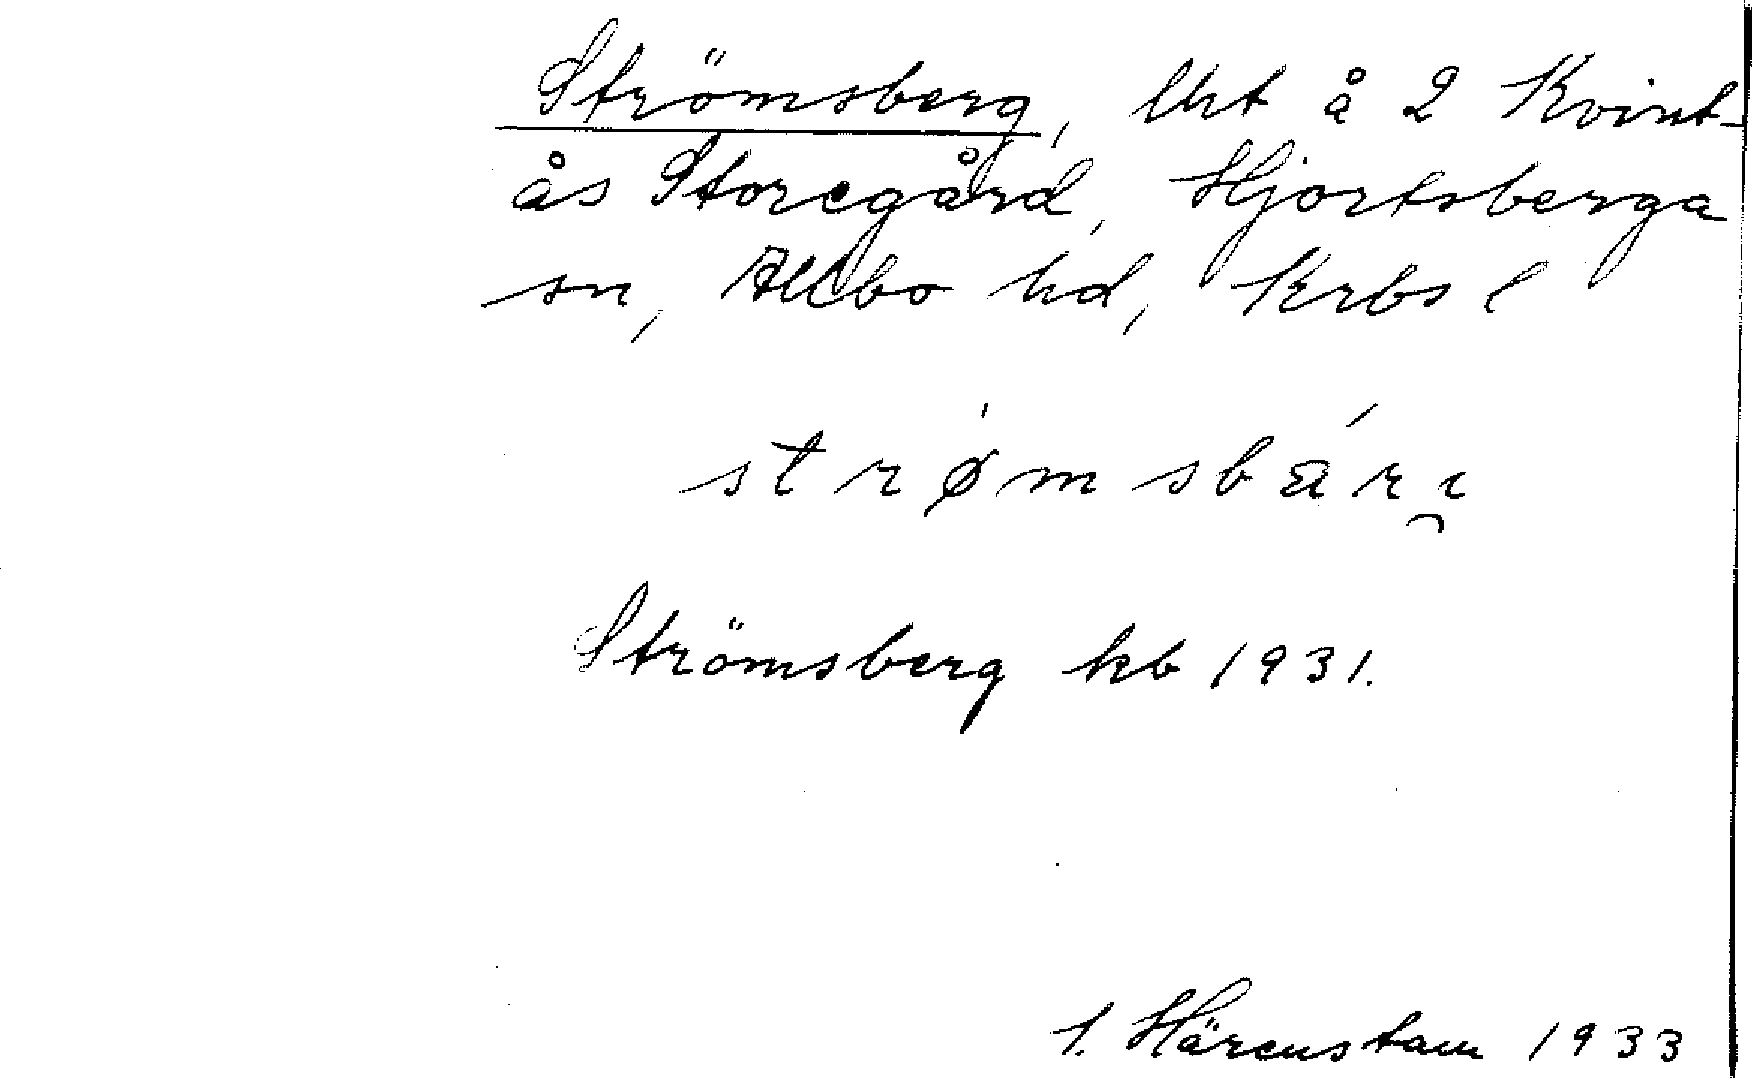 Strömsberg, lht å 2 Kvint-
ås Storegård, Hjortsberga
sn, Allbo hd, Krbs l
strømsbär
Strömsberg kb 1931.
Härenstam 1933